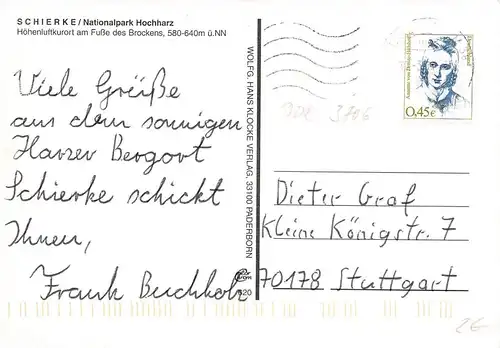 SCHIERKE / Nationalpark Hochharz
Höhenluftkurort am Fuße des Brockens, 580-640m ü.NN
Viele Grüße
aus dem sonnigen
Harzer Bergort
Schierke schickt
Ihnen,
Frank Buchholz
WOLFG. HANS KLOCKE VERLAG, 33100 PADERBORN
Annette von Droste-Hülshoff
Deutschland
0,45€
Dieter Graf
Kleine Königstr. 7
70178 Stuttgart